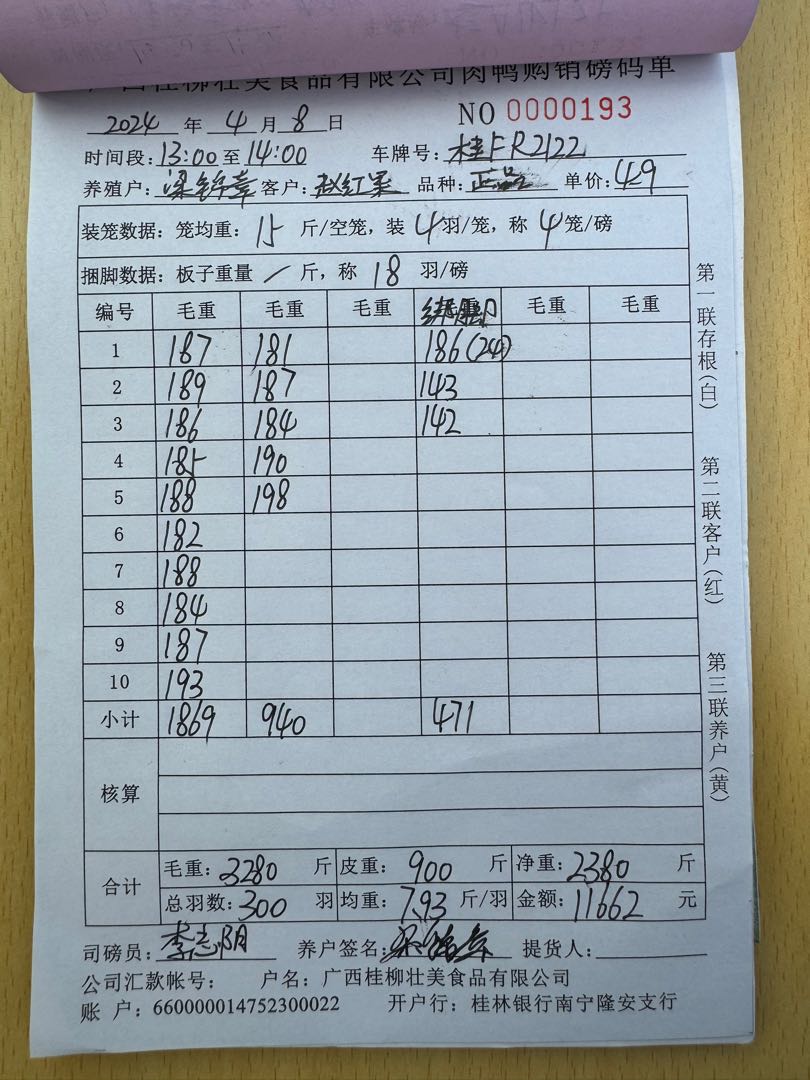 广西桂柳壮美食品有限公司肉鸭购销磅码单
2024 年 4 月 8 日 NO 0000193
时间段:13:00至14:00 车牌号:桂FR2122
养殖户:梁锦章 客户:赵红果 品种:正品 单价:4.9
装笼数据:笼均重:15 斤/空笼,装 4 羽/笼,称 4 笼/磅
捆脚数据:板子重量 / 斤,称 18 羽/磅
编号 毛重 毛重 毛重 绑脚 毛重 毛重
1 187 181 186(24)
2 189 187 143
3 186 184 142
4 185 190
5 188 198
6 182
7 188
8 184
9 187
10 193
小计 1869 940 471
核算
合计 毛重:3280 斤 皮重:900 斤 净重:2380 斤
总羽数:300 羽 均重:7.93 斤/羽 金额:11662 元
司磅员:李志阴 养户签名: 提货人:
公司汇款帐号: 户名:广西桂柳壮美食品有限公司
账 户:660000014752300022 开户行:桂林银行南宁隆安支行
第一联存根(白)
第二联客户(红)
第三联养户(黄)